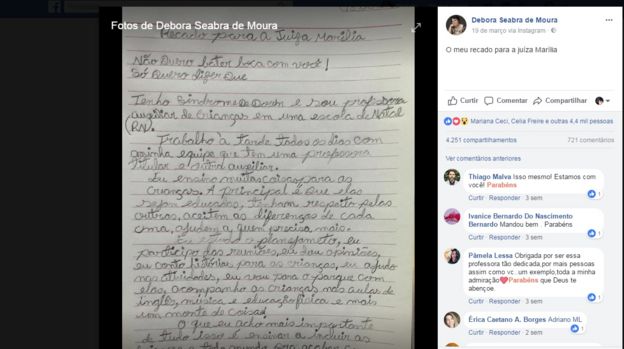 Fotos de Debora Seabra de Moura
Recado para a Juíza Marília
Não Quero bater boca com você!
Só Quero dizer Que
Tenho Síndrome de Down e sou professora
auxiliar de crianças em uma escola de Natal
(RN).
Trabalho à tarde todos os dias com
minha equipe que tem uma professora
titular e outra auxiliar.
Eu ensino muitas coisas para as
crianças. A principal é Que elas
sejam educadas, tenham respeito pelas
outras, aceitem as diferenças de cada
uma, ajudem a quem precisa mais.
Eu estudo o planejamento, eu
participo das reuniões, eu dou opiniões,
eu conto histórias para as crianças, eu ajudo
nas atividades, eu vou para o parque com
elas, acompanho as crianças nas aulas de
inglês, música e educação física e mais
um monte de coisas!
O que eu acho mais importante
de tudo isso é ensinar a incluir as
Debora Seabra de Moura
19 de março via Instagram
O meu recado para a juíza Marília
Curtir Comentar Compartilhar
Mariana Ceci, Celia Freire e outras 4,4 mil pessoas
4.251 compartilhamentos 721 comentários
Ver comentários anteriores
Thiago Malva Isso mesmo! Estamos com
você! Parabéns
Curtir · Responder · 3 sem 1
Ivanice Bernardo Do Nascimento
Bernardo Mandou bem . Parabéns
Curtir · Responder · 3 sem 1
Pâmela Lessa Obrigada por ser essa
professora tão dedicada,por mais pessoas
assim como vc .um exemplo,toda a minha
admiração❤Parabéns que Deus te
abençoe.
Curtir · Responder · 3 sem 1
Érica Caetano A. Borges Adriano ML
Curtir · Responder · 2 sem 1